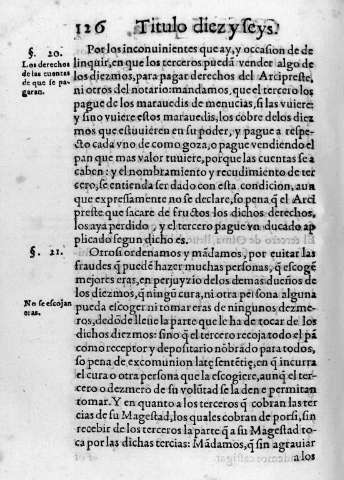 126 Titulo diez y seys.
§. 20.
Los derechos
de las cuentas
de que se pa-
garan.
Por los inconuinientes que ay, y occasion de de
linquir, en que los terceros pueda vender algo de
los diezmos, para pagar derechos del Arcipreste,
ni otros del notario: mandamos, que el tercero los
pague de los marauedis de menucias, si las vuiere:
y sino vuiere estos marauedis, los cobre de los diez
mos que estuuierẽ en su poder, y pague a respe-
cto cada vno de como goza, o pague vendiendo el
pan que mas valor tuuiere, porque las cuentas se a
caben: y el nombramiento y recudimiento de ter
cero, se entienda ser dado con esta condicion, aun
que expressamente no se declare, so pena q̃ el Arci
preste que sacare de fructos los dichos derechos,
los aya perdido, y el tercero pague vn ducado ap
plicado segun dicho es.
§. 21.
No se escojan
eras.
Otrosi ordenamos y mãdamos, por euitar las
fraudes q̃ puedẽ hazer muchas personas, q̃ escogẽ
mejores eras, en perjuyzio de los demas dueños de
los diezmos, q̃ ningũ cura, ni otra persona alguna
pueda escoger ni tomar eras de ningunos dezme-
ros, dedõde lleue la parte que le ha de tocar de los
dichos diezmos: sino q̃ el tercero recoja todo el pã
como receptor y depositario nõbrado para todos,
so pena de excomunion latę sentẽtię, en q̃ incurra
el cura o otra persona que la escogiere, aunq̃ el ter-
cero o dezmero de su volũtad se la den e permitan
tomar. Y en quanto a los terceros q̃ cobran las ter
cias de su Magestad, los quales cobran de por si, sin
recebir de los terceros la parte q̃ a su Magestad to
ca por las dichas tercias: Mãdamos, q̃ sin agrauiar
a los